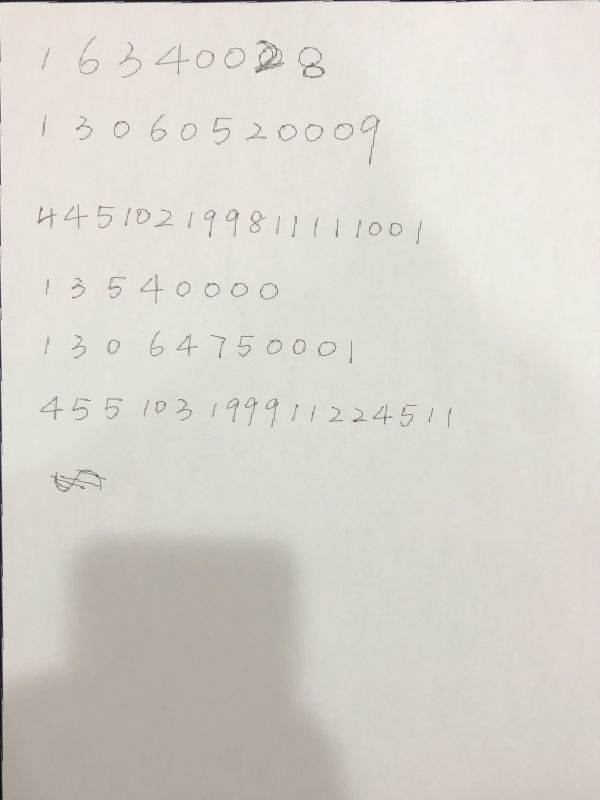 16340028
13060520009
445102199811111001
13540000
13064750001
455103199911224511